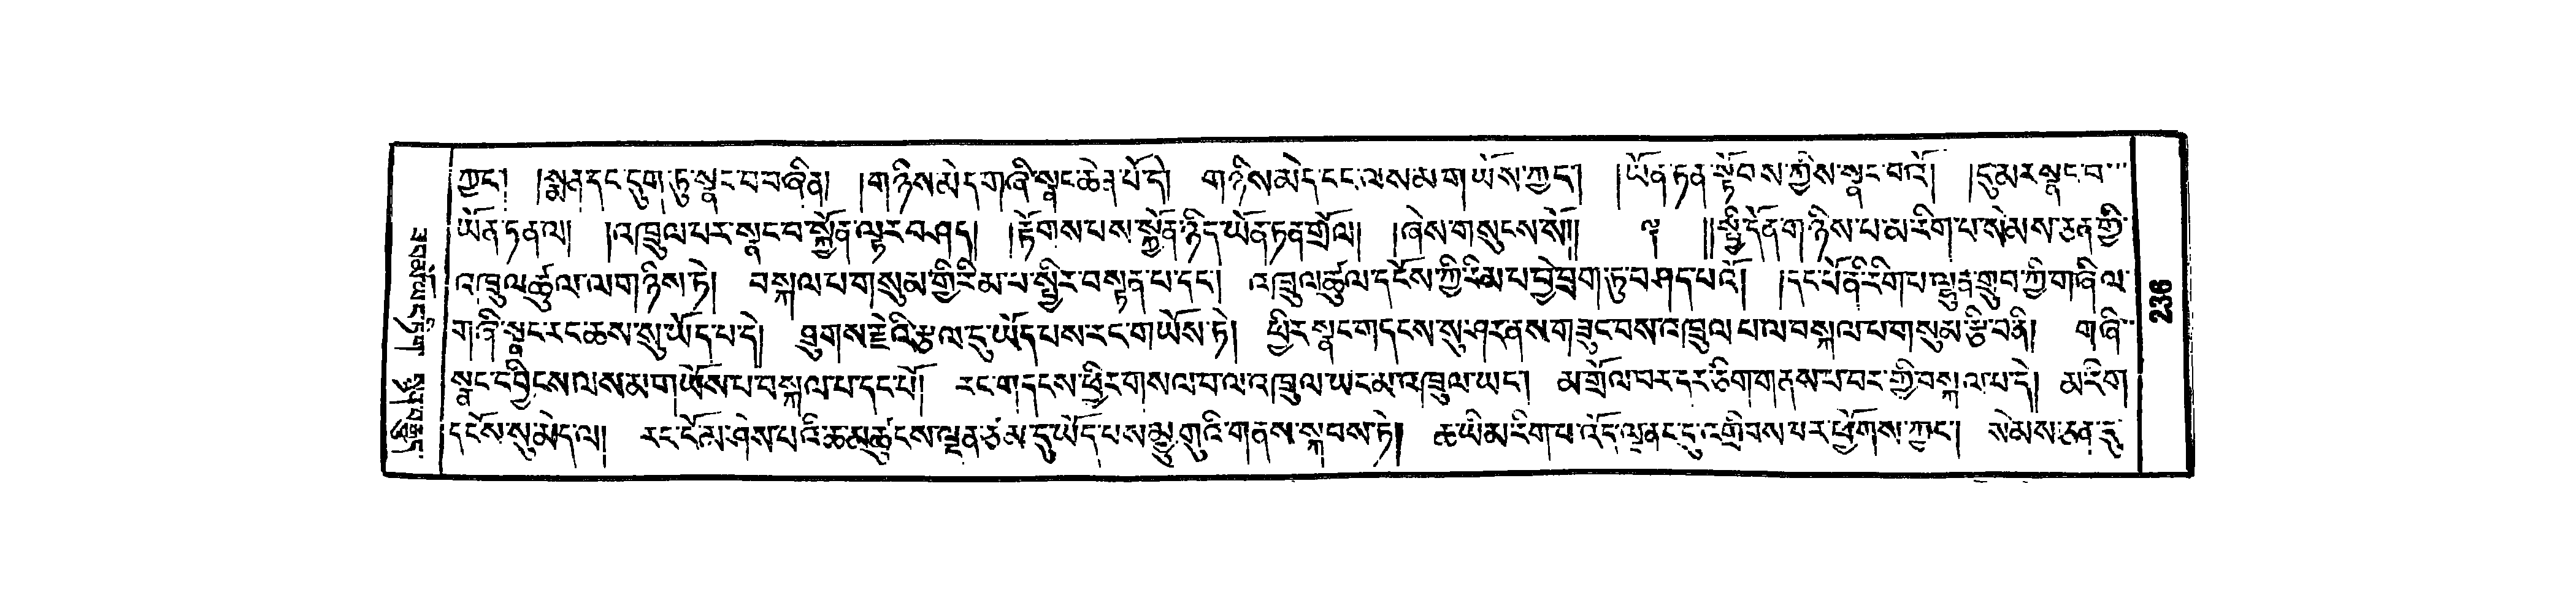 ཀྱང་། །སྨན་དང་དུག་ཏུ་སྣང་བ་བཞིན། །གཉིས་མེད་གཞི་སྣང་ཆེན་པོ་དེ། གཉིས་མེད་ངང་ལས་མ་གཡོས་ཀྱང་། །ཡོན་ཏན་སྟོབས་ཀྱིས་སྣང་བའོ། །དུ་མར་སྣང་བ་
ཡོན་ཏན་ལ། །འཁྲུལ་པར་སྣང་བ་སྐྱོན་ལྟར་བཤད། །རྟོགས་པས་སྐྱོན་ཉིད་ཡོན་ཏན་གྲོལ། །ཞེས་གསུངས་སོ།། ༎སྤྱི་དོན་གཉིས་པ་མ་རིག་པ་སེམས་ཅན་གྱི་
འཁྲུལ་ཚུལ་ལ་གཉིས་ཏེ། བསྐལ་པ་གསུམ་གྱི་རིམ་པ་སྤྱིར་བསྟན་པ་དང་། འཁྲུལ་ཚུལ་དངོས་ཀྱི་རིམ་པ་བྱེ་བྲག་ཏུ་བཤད་པའོ། །དང་པོ་ནི་རིག་པ་ལྷུན་གྲུབ་ཀྱི་གཞི་ལ་
གཞི་སྣང་རང་ཆས་སུ་ཡོད་པ་དེ། ཐུགས་རྗེའི་རྩལ་དུ་ཡོད་པས་རང་གཡོས་ཏེ། ཕྱིར་སྣང་གདངས་སུ་ཤར་ནས་གཟུང་བས་འཁྲུལ་པ་ལ་བསྐལ་པ་གསུམ་རྩི་བ་ནི། གཞི་
སྣང་དབྱིངས་ལས་མ་གཡོས་པ་བསྐལ་པ་དང་པོ། རང་གདངས་ཕྱིར་གསལ་བ་ལ་འཁྲུལ་ཡང་མ་འཁྲུལ་ཡང་། མ་གྲོལ་བར་དར་ཅིག་གནས་པ་བར་གྱི་བསྐལ་པ་དེ། མ་རིག
དངོས་སུ་མེད་ལ། རང་ངོ་མ་ཤེས་པའི་ཆ་མཚུངས་ལྡན་ཙམ་དུ་ཡོད་པས་མྱུ་གུའི་གནས་སྐབས་ཏེ། ཆ་ཡི་མ་རིག་པ་འོད་ལྔ་ནང་དུ་འགྲིབས་པར་ཕྱོགས་ཀྱང་། སེམས་ཅན་དུ